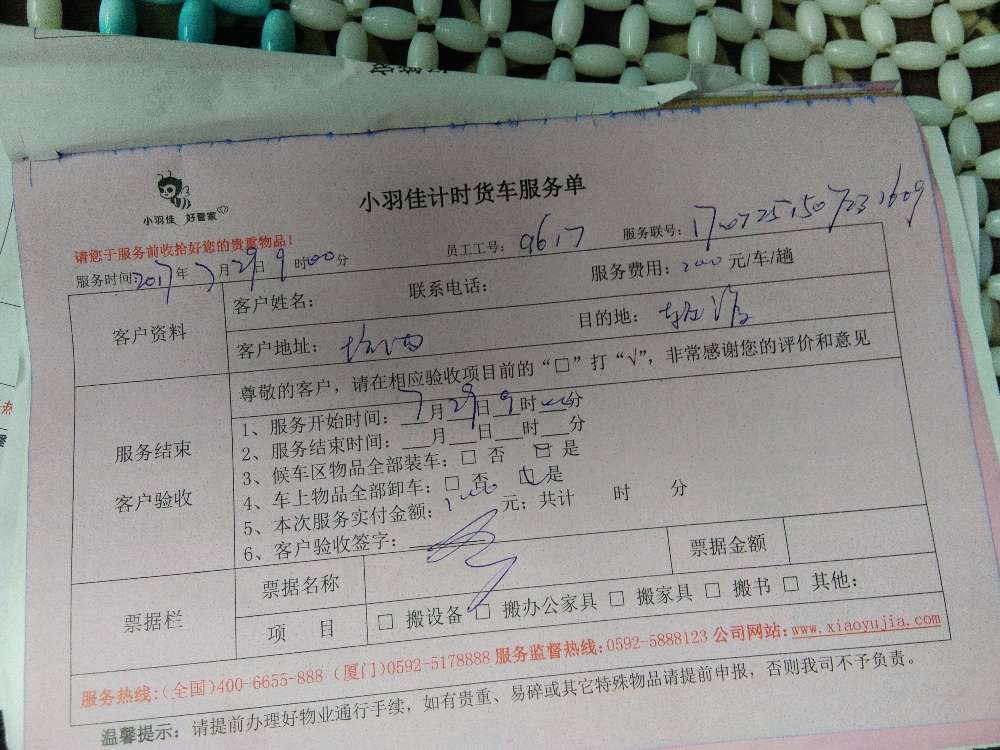 小羽佳 好管家
小羽佳计时货车服务单
请您于服务前收拾好您的贵重物品!
员工工号: 9617 服务联号:
服务时间:2017年7月29日9时00分
客户资料
客户姓名: 联系电话: 服务费用: 200元/车/趟
客户地址: 目的地:
尊敬的客户，请在相应验收项目前的“□”打“√”，非常感谢您的评价和意见
服务结束
客户验收
1、服务开始时间: 7月29日9时00分
2、服务结束时间: __月__日__时__分
3、候车区物品全部装车: □ 否 □ 是
4、车上物品全部卸车: □ 否 □ 是
5、本次服务实付金额: 元; 共计 时 分
6、客户验收签字:
票据栏
票据名称 票据金额
项 目 □ 搬设备 □ 搬办公家具 □ 搬家具 □ 搬书 □ 其他:
服务热线:(全国)400-6655-888 (厦门)0592-5178888 服务监督热线:0592-5888123 公司网站:www.xiaoyujia.com
温馨提示: 请提前办理好物业通行手续，如有贵重、易碎或其它特殊物品请提前申报，否则我司不予负责。